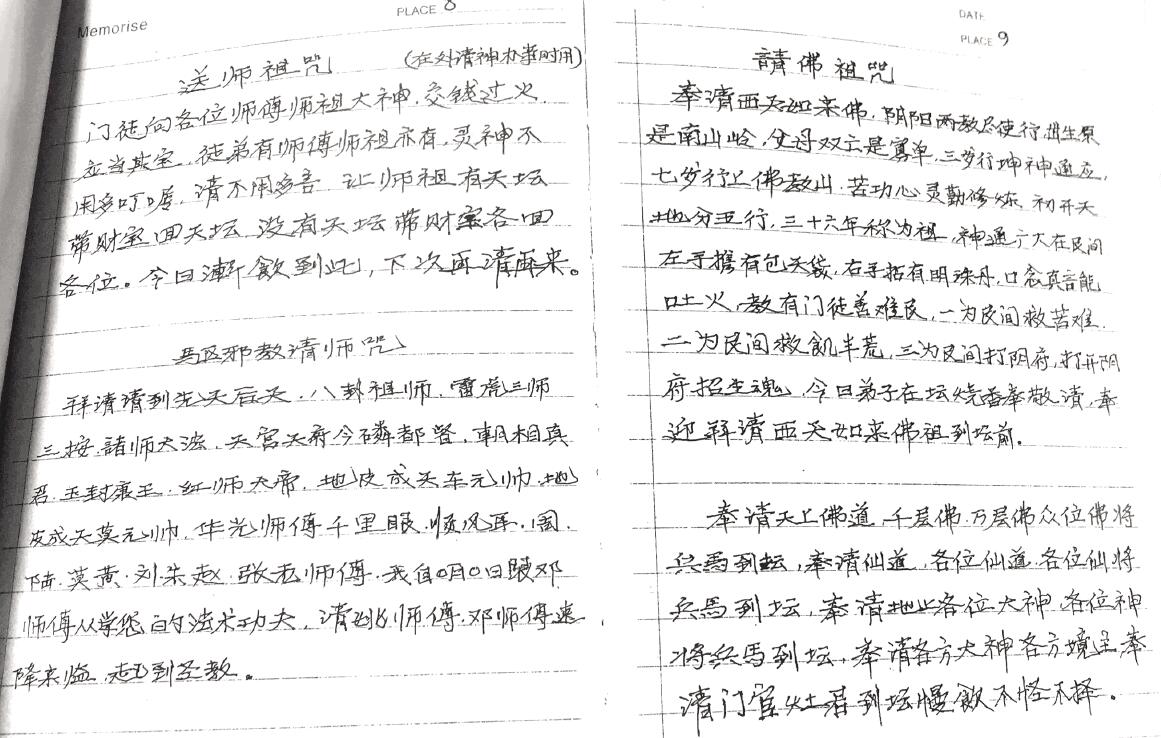 Memorise
PLACE 8
送师祖咒 (在外请神办事时用)
门徒向各位师傅师祖大神.交钱过火.
应当其宝.徒弟有师傅师祖亦有,灵神不
用多叮嘱,请不用多言 让师祖有天坛
带财宝回天坛 没有天坛带财宝各回
各位。今日漸飲到此,下次再请再来。
邪教请师咒
拜请请到先天后天.八卦祖师.雷虎三师
三按.諸师大法.天宫天府今磷都督.朝相真
君.玉封康王.红师大帝.地皮成天车元帅.地
皮成天莫元帅.华光师傅千里眼.顺风耳.周.
陆.莫黄.刘朱赵.张 师傅.我自0月0日跟邓
师傅从学您 的法术功夫.请 师傅.邓师傅速
降来临. 到圣教。
DATE
PLACE 9
請佛祖咒
奉请西天如来佛.阴阳两教尽使行.出生原
是南山岭.父母双亡是寡单.三步行坤神通应,
七步行上佛教山.苦功心灵勤修炼.初开天
地分五行,三十六年称为祖,神通广大在民间
左手携有包天袋,右手拈有明珠丹,口念真言能
吐火.教有门徒善难民,一为民间救苦难.
二为民间救飢半荒,三为民间打阴府,打开阴
府招生魂.今日弟子在坛烧香奉敬请,奉
迎拜请西天如来佛祖到坛前.
奉请天上佛道.千层佛.万层佛众位佛将
兵馬到坛,奉请仙道.各位仙道.各位仙将
兵馬到坛,奉请地上各位大神.各位神
将兵馬到坛,奉请各方大神各方境主奉
请门官灶君到坛慢飲不怪不择.